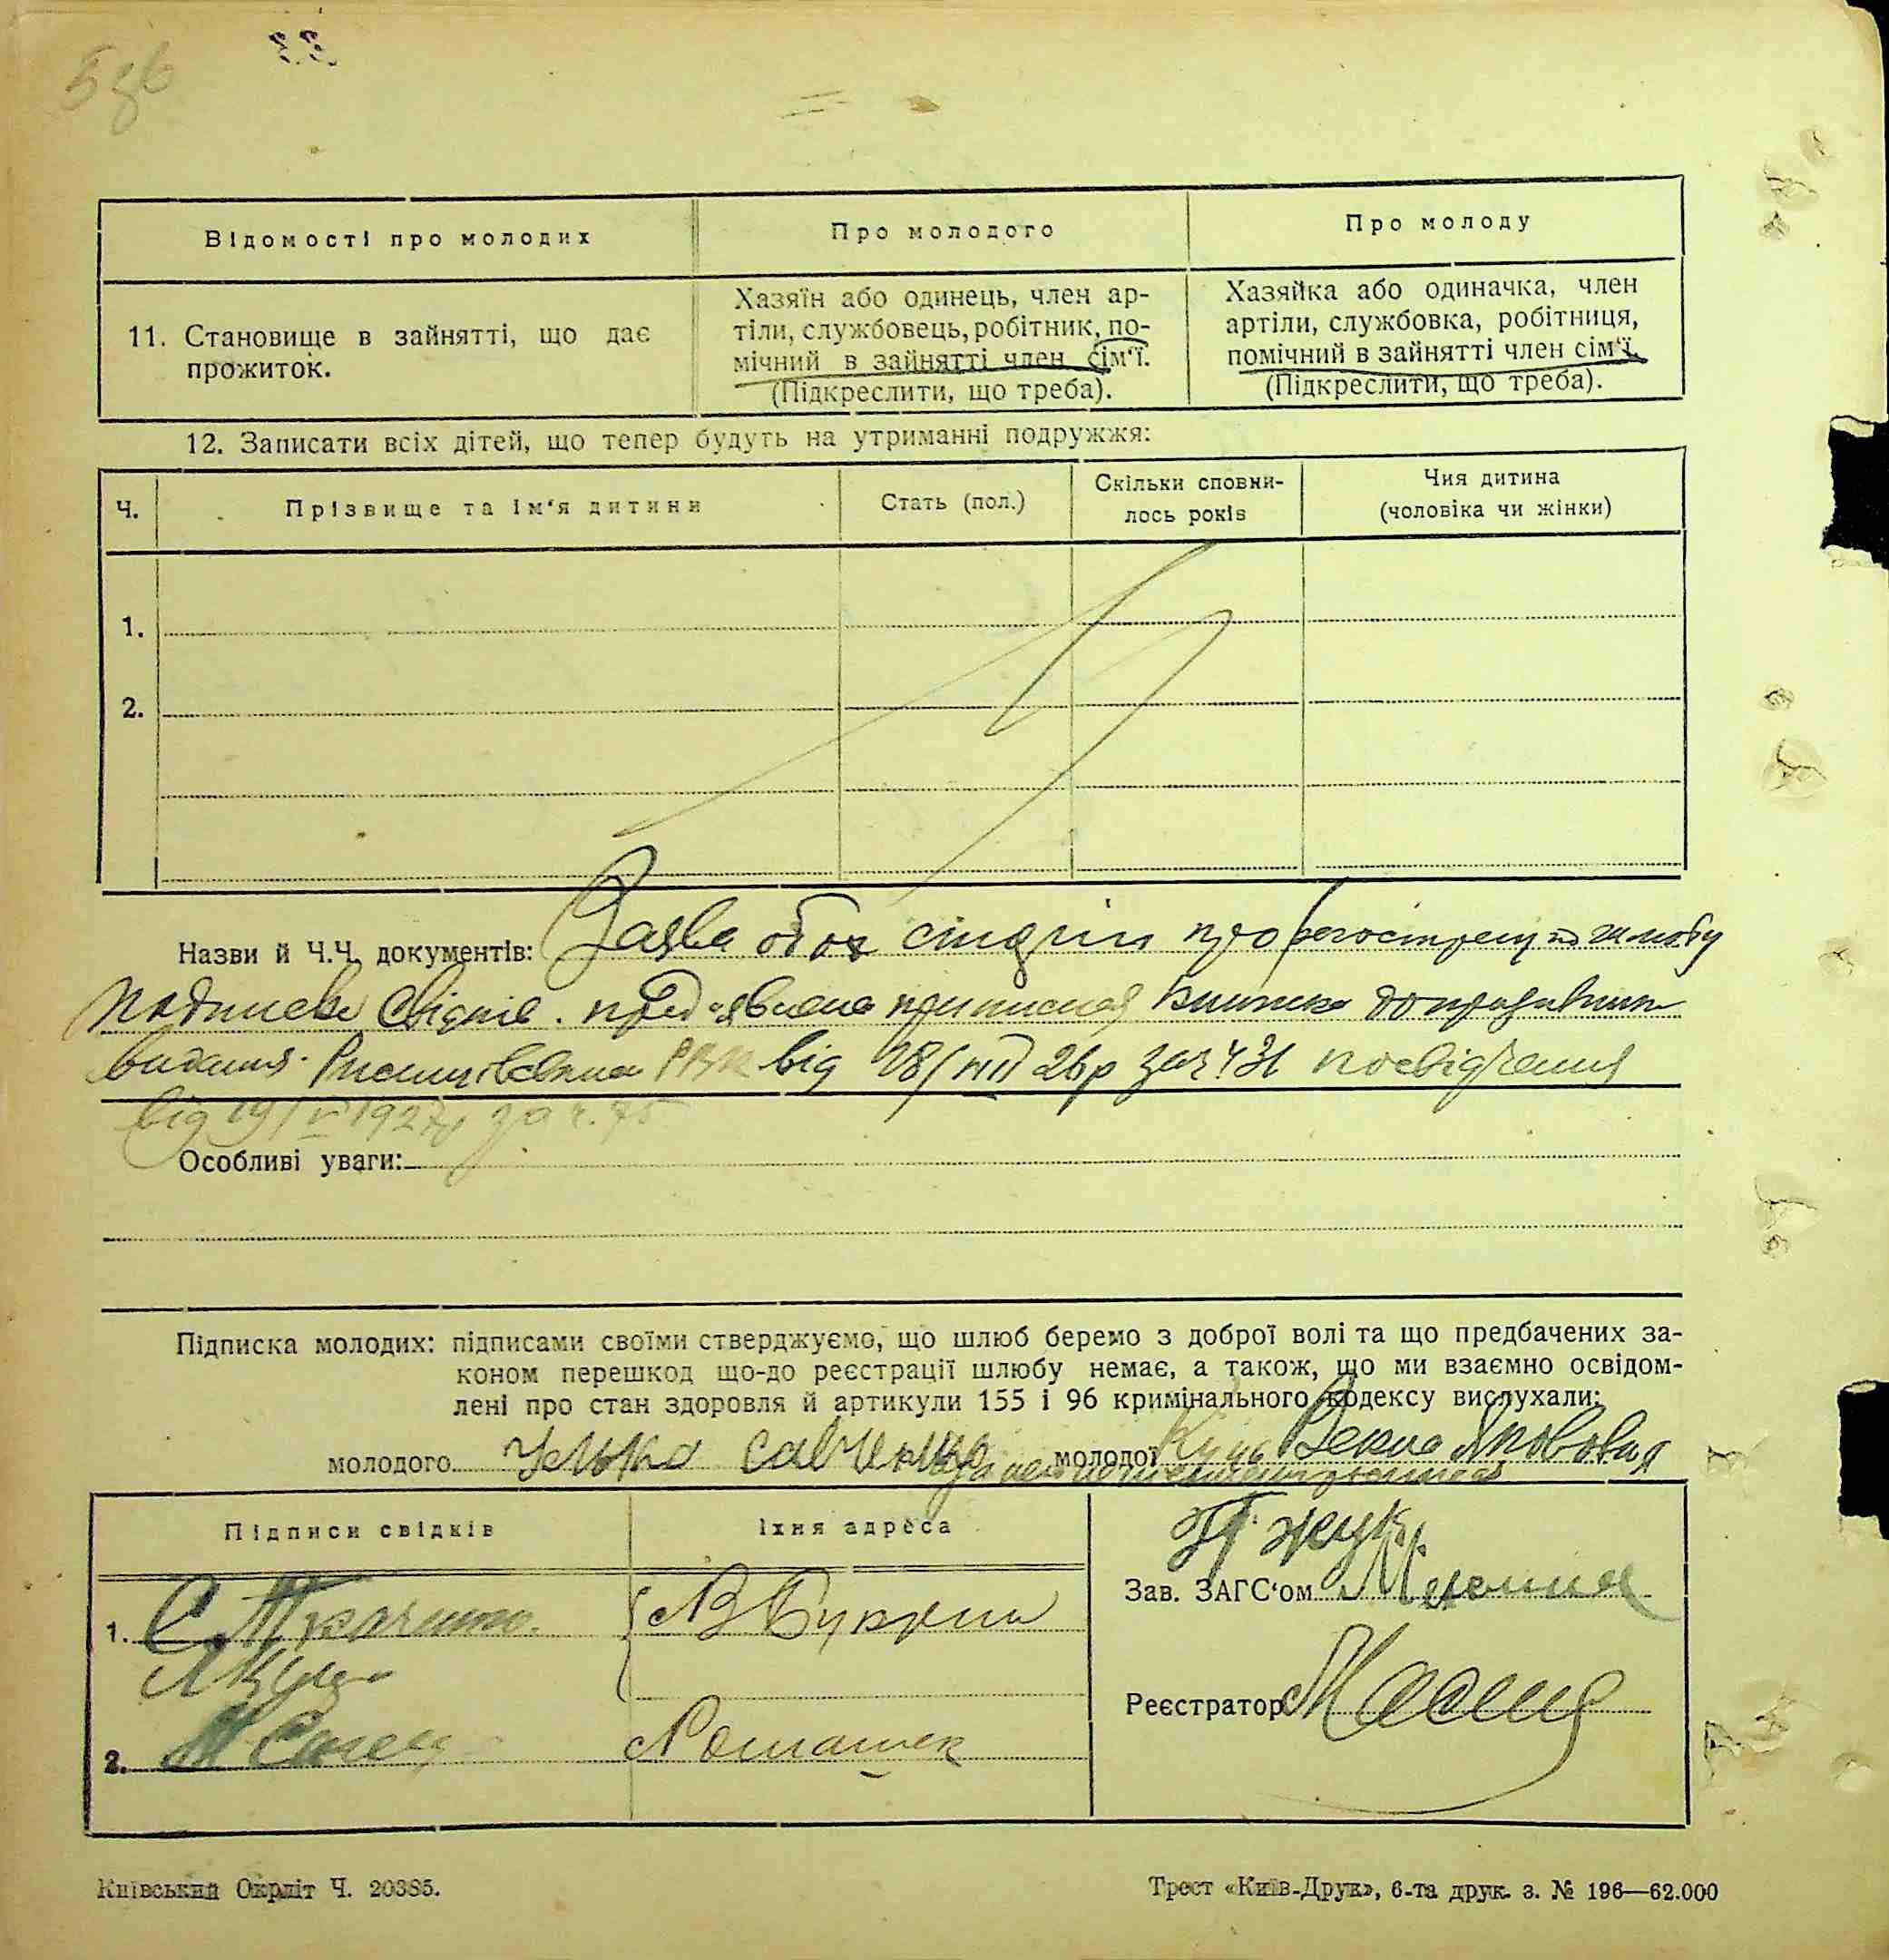 Відомості про молодих
Про молодого
Про молоду
11. Становище в зайнятті, що дає
прожиток.
Хазяїн або одинець, член ар-
тіли, службовець, робітник, по-
мічний в зайнятті член сім'ї.
(Підкреслити, що треба).
Хазяйка або одиначка, член
артіли, службовка, робітниця,
помічний в зайнятті член сім'ї.
(Підкреслити, що треба).
12. Записати всіх дітей, що тепер будуть на утриманні подружжя:
Ч.
Прізвище та ім'я дитини
Стать (пол.)
Скільки сповни-
лось років
Чия дитина
(чоловіка чи жінки)
1.
2.
Назви й Ч.Ч. документів: Заява обох сторін про
свідків. приписная книжка
видання РВК від 18/VIII 26р за ч 431 посвідчення
від 19/V 1927р за ч. 75
Особливі уваги:
Підписка молодих: підписами своїми стверджуємо, що шлюб беремо з доброї волі та що предбачених за-
коном перешкод що-до реєстрації шлюбу немає, а також, що ми взаємно освідом-
лені про стан здоровля й артикули 155 і 96 кримінального кодексу вислухали:
молодого Улька Савченко молодої Векла Якововня
Підписи свідків
Їхня адреса
1. С. Ткаченко. В Букрин
2. М
Жук
Зав. ЗАГС'ом
Реєстратор
Київський Окрліт Ч. 20385.
Трест «Київ-Друк», 6-та друк. з. № 196—62.000